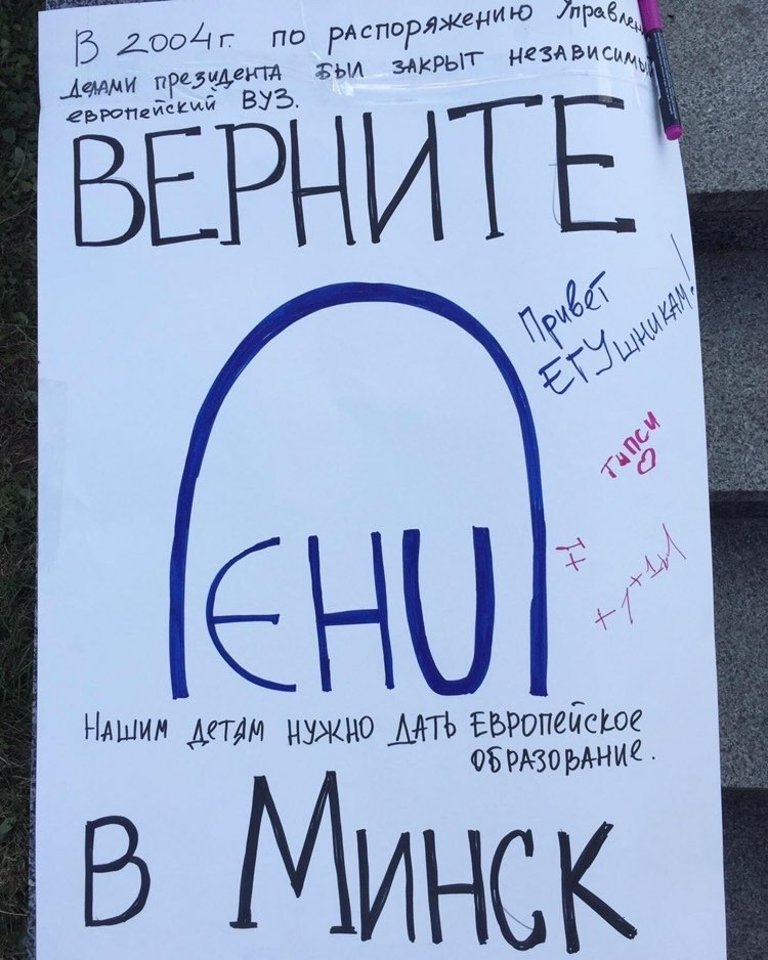 В 2004г. по распоряжению Управлен
делами президента был закрыт независимы
европейский ВУЗ.
ВЕРНИТЕ
Привет
ЕГУшникам!
типси
EHU
+1
+1+1+1
Нашим детям нужно дать европейское
образование.
в Минск